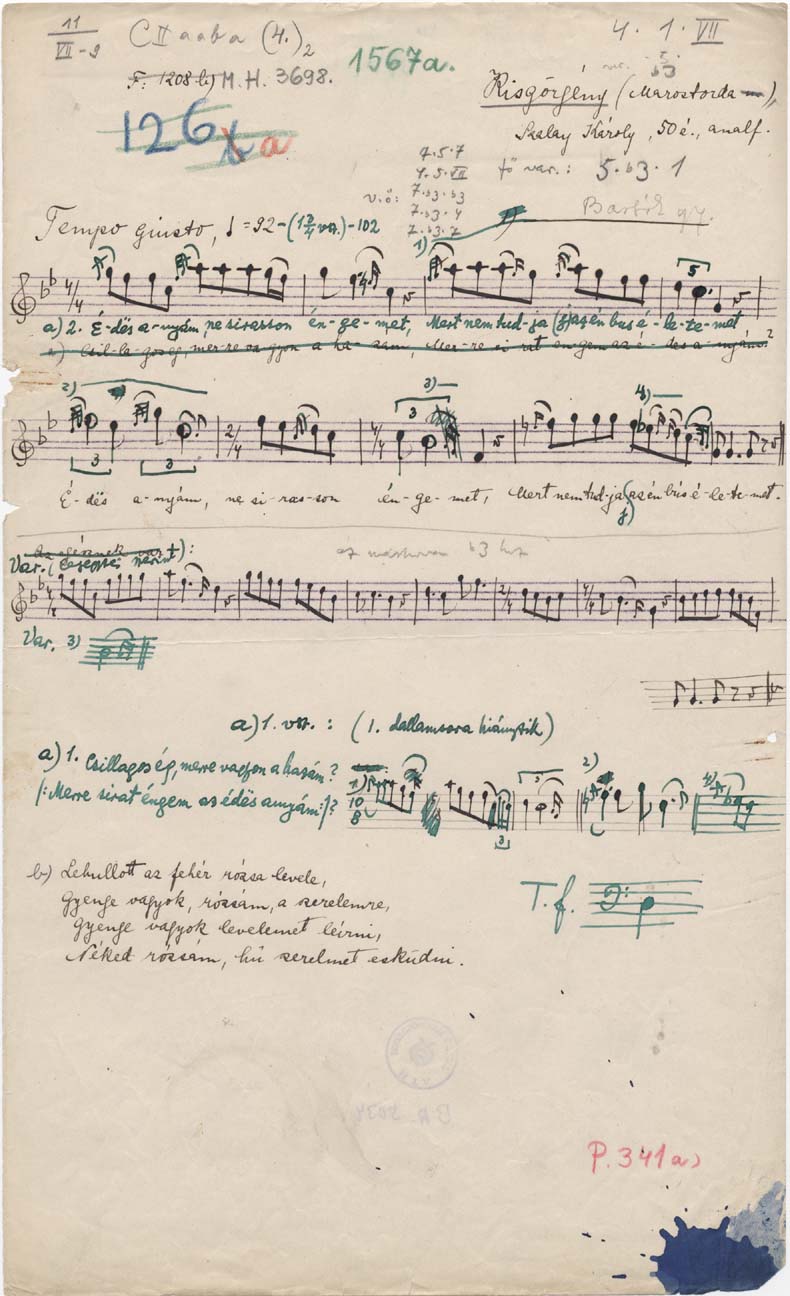 11
VII-9
C II a a b a (4.)2
4. 1. VII
1567a.
F. 1208 b) M. H. 3698.
var. b3
Kisgörgény (Marostorda),
126 b a
Szalay Károly, 50 é., analf.
7.5.7
4.5.VII
fő var.: 5. b3. 1
v.ö: 7.b3.b3
7.b3.4
7.b3.7
Bartók gy.
Tempo giusto, ♩ = 92-(1 3/4 vsz.)-102
1)
4/4
5
a) 2. É-dës a-nyám, ne sirasson én-ge-met, Mert nem tud-ja az én bús é-le-te-met
a) Csil-la-gos ég, mer-re va-gyon a ha-zám, Mer-re si-rat en-gem az é-des a-nyám?
2) 3) 4)
2/4 4/4
3 3 3
É-dës a-nyám, ne si-ras-son én-ge-met, Mert nem tud-ja az én bús é-le-te-met.
Az egésznek var.):
Var.
b3
4/4 2/4 4/4
Var. 3)
a) 1. vsz.: (1. dallamsora hiányzik)
a) 1. Csillagos ég, merre vagyon a hazám?
|: Merre sirat éngem az édës anyám :|?
1) 10/8 3 2) 4)
3
b) Lehullott az fehér rózsa levele,
Gyenge vagyok, rózsám, a szerelemre,
Gyenge vagyok levelemet leírni,
Néked rózsám, hű szerelmet esküdni.
T. f.
P. 341 a)